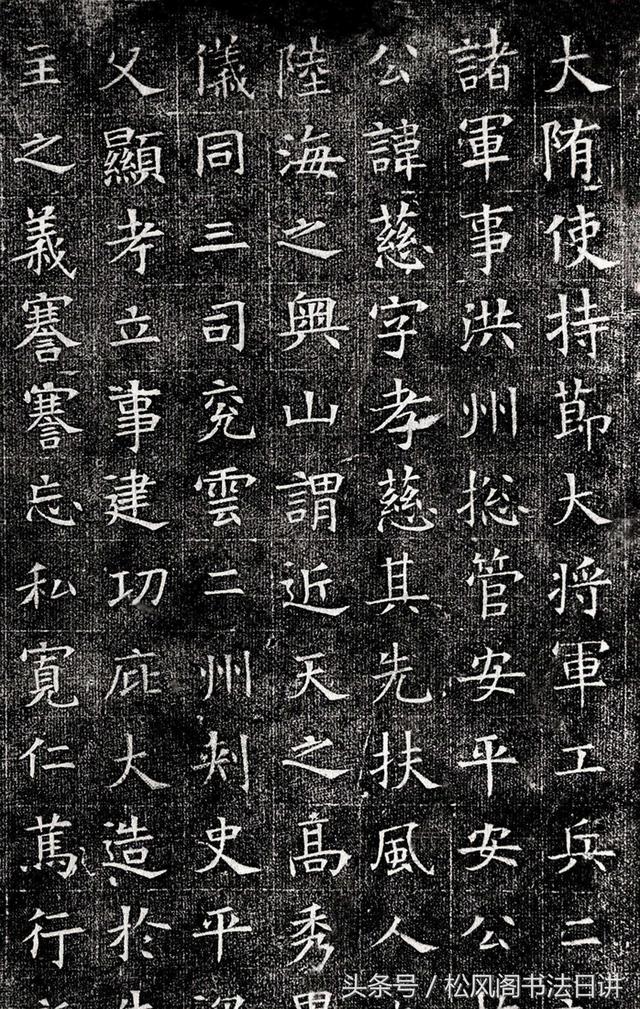 大隋使持莭大将軍工兵二
諸軍事洪州揔管安平安公
公諱慈字孝慈其先扶風人
陸海之奥山謂近天之高秀
儀同三司兖雲二州刾史平
父顯考立事建功庇大造於
主之義謇謇忘私寬仁篤行
头条号/松风阁书法日讲